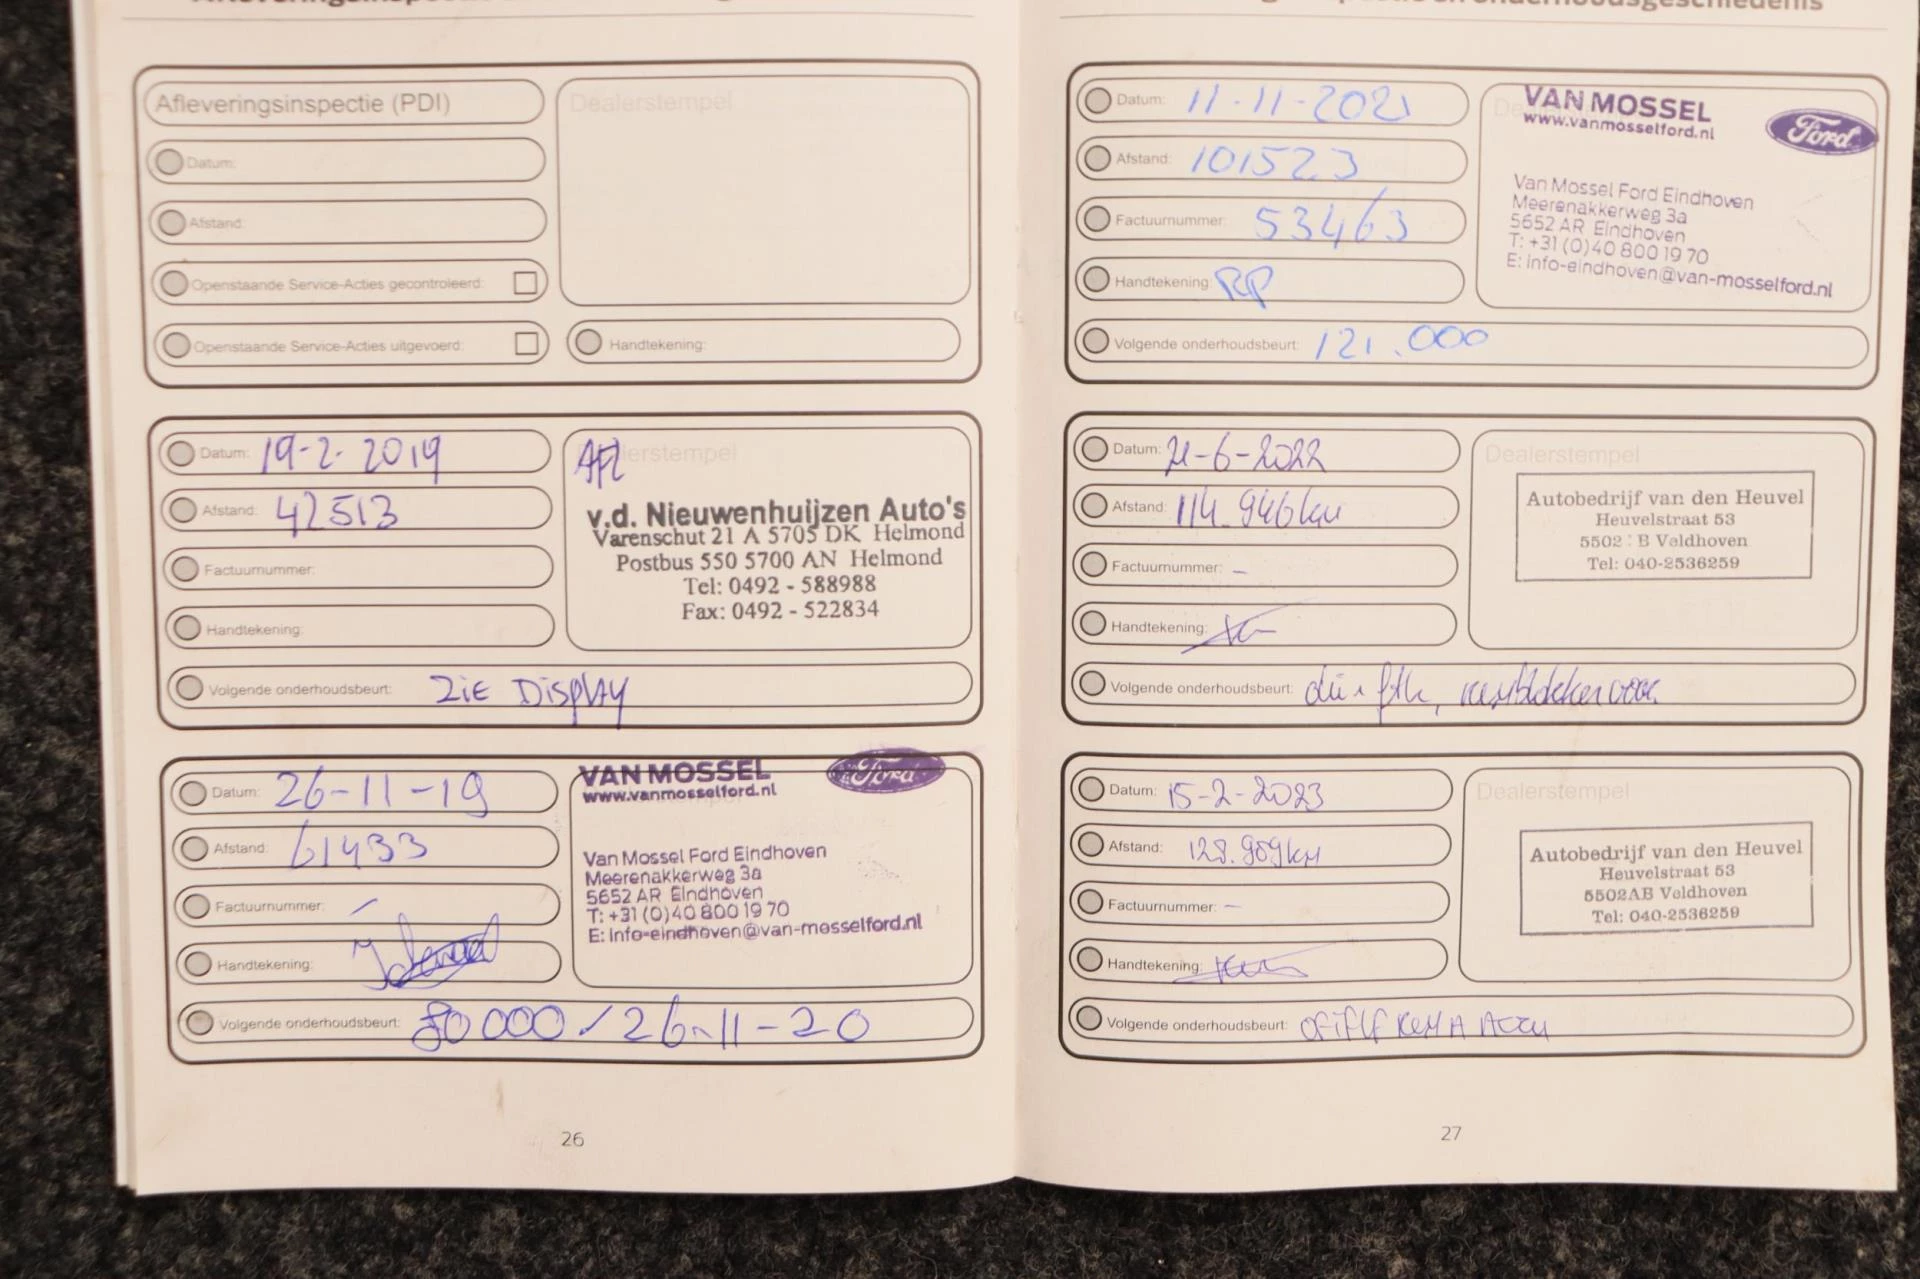 Afleveringsinspectie (PDI)
Dealerstempel
Datum:
Afstand:
Openstaande Service-Acties gecontroleerd:
Openstaande Service-Acties uitgevoerd:
Handtekening:
Datum: 19-2-2019
Afstand: 42513
Factuurnummer:
Handtekening:
Volgende onderhoudsbeurt: ZiE DiSplAY
AFL
Dealerstempel
v.d. Nieuwenhuijzen Auto's
Varenschut 21 A 5705 DK Helmond
Postbus 550 5700 AN Helmond
Tel: 0492 - 588988
Fax: 0492 - 522834
Datum: 26-11-19
Afstand: 61433
Factuurnummer:
Handtekening:
Volgende onderhoudsbeurt: 80 000 / 26-11-20
VAN MOSSEL
Ford
www.vanmosselford.nl
Van Mossel Ford Eindhoven
Meerenakkerweg 3a
5652 AR Eindhoven
T: +31 (0)40 800 19 70
E: info-eindhoven@van-mosselford.nl
26
onderhoudsgeschiedenis
Datum: 11-11-2021
Afstand: 101523
Factuurnummer: 53463
Handtekening: RP
Volgende onderhoudsbeurt: 121.000
VAN MOSSEL
www.vanmosselford.nl
Ford
Van Mossel Ford Eindhoven
Meerenakkerweg 3a
5652 AR Eindhoven
T: +31 (0)40 800 19 70
E: info-eindhoven@van-mosselford.nl
Datum: 21-6-2022
Afstand: 114.946km
Factuurnummer: -
Handtekening:
Volgende onderhoudsbeurt:
Dealerstempel
Autobedrijf van den Heuvel
Heuvelstraat 53
5502 B Veldhoven
Tel: 040-2536259
Datum: 15-2-2023
Afstand: 128.909km
Factuurnummer: -
Handtekening:
Volgende onderhoudsbeurt:
Dealerstempel
Autobedrijf van den Heuvel
Heuvelstraat 53
5502AB Veldhoven
Tel: 040-2536259
27